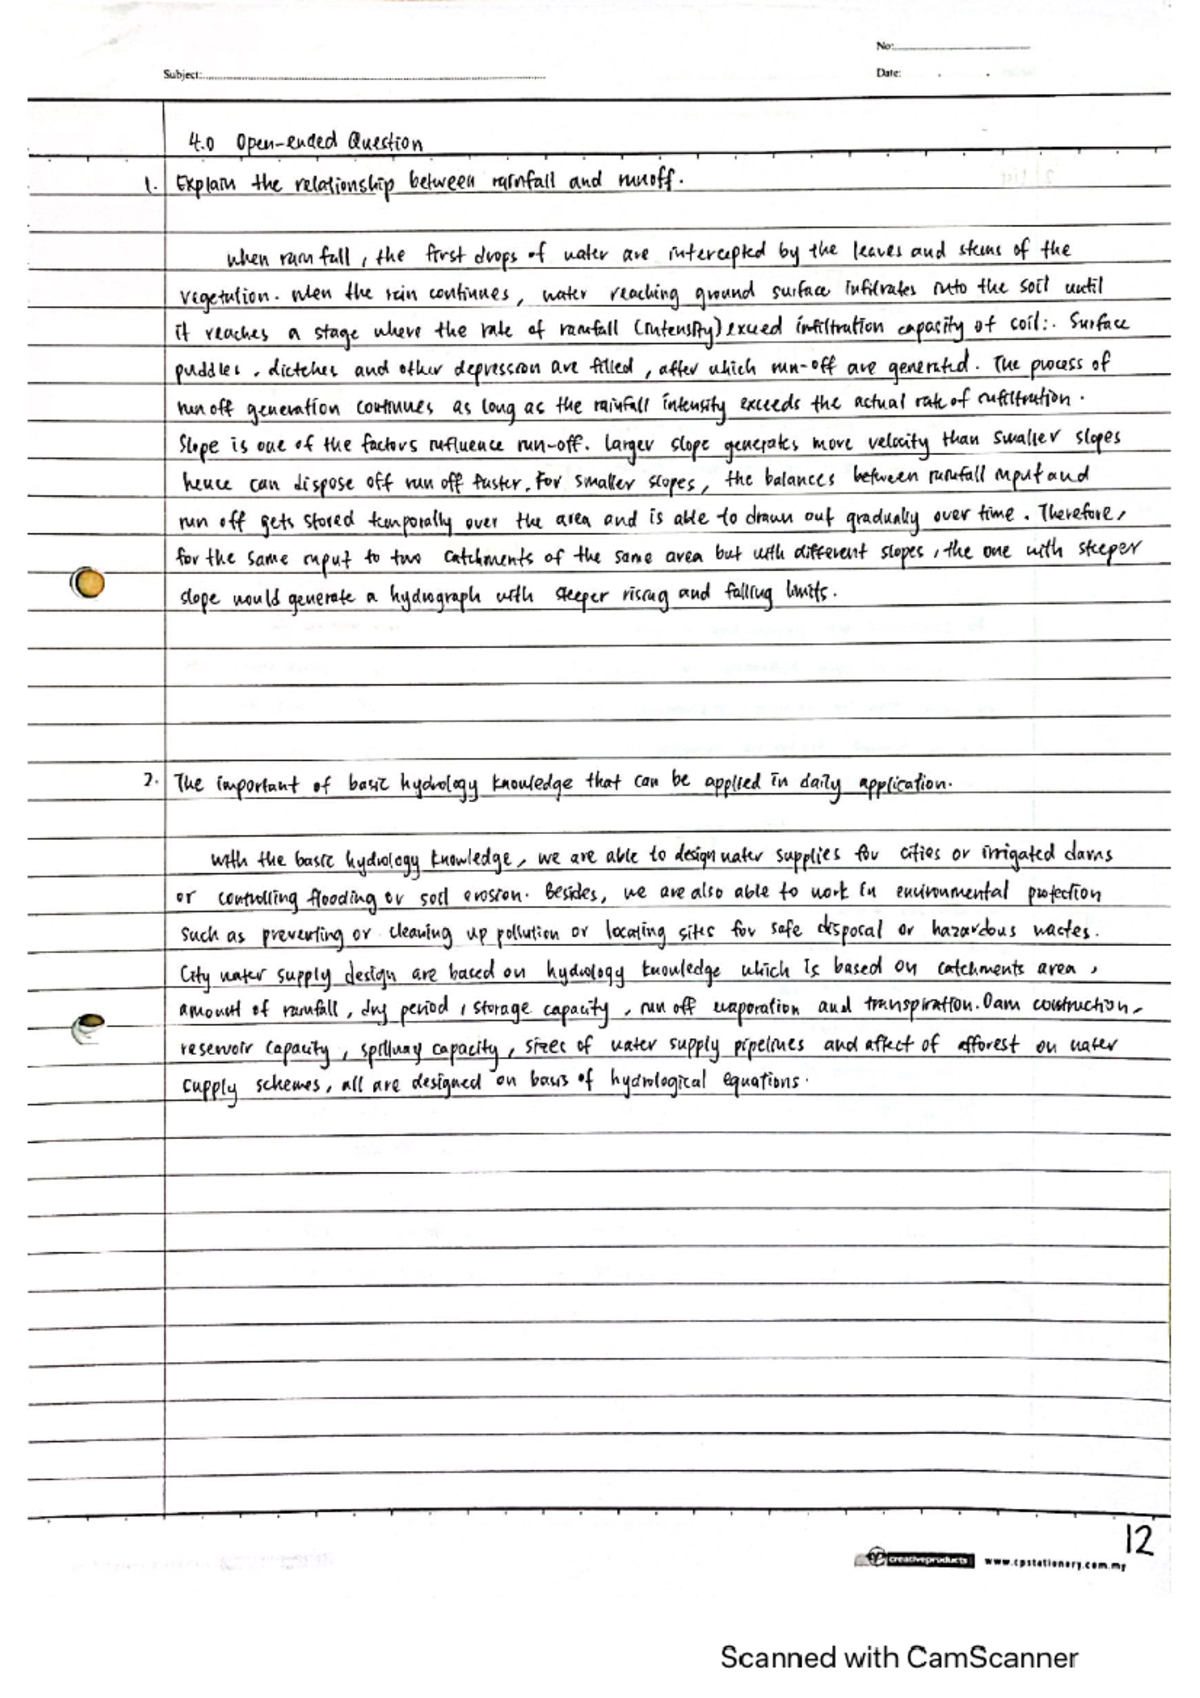 No:
Subject:
Date:
4.0 Open-ended Question
1. Explain the relationship between rainfall and runoff.
When rain fall, the first drops of water are intercepted by the leaves and stems of the
vegetation. When the rain continues, water reaching ground surface infiltrates into the soil until
it reaches a stage where the rate of rainfall (intensity) exceed infiltration capacity of coil:. Surface
puddles, dictches and other depression are filled, after which run-off are generated. The process of
run off generation continues as long as the rainfall intensity exceeds the actual rate of infiltration.
Slope is one of the factors influence run-off. Larger slope generates more velocity than smaller slopes
hence can dispose off run off faster. For smaller slopes, the balances between rainfall input and
run off gets stored temporally over the area and is able to drawn out gradually over time. Therefore,
for the same input to two catchments of the same area but with different slopes, the one with steeper
slope would generate a hydrograph with steeper rising and falling limits.
2. The important of basic hydrology knowledge that can be applied in daily application.
With the basic hydrology knowledge, we are able to design water supplies for cities or irrigated dams
or controlling flooding or soil erosion. Besides, we are also able to work in environmental protection
such as preventing or cleaning up pollution or locating sites for safe disposal or hazardous wastes.
City water supply design are based on hydrology knowledge which is based on catchments area,
amount of rainfall, dry period, storage capacity, run off evaporation and transpiration. Dam construction,
reservoir capacity, spillway capacity, sizes of water supply pipelines and affect of afforest on water
supply schemes, all are designed on basis of hydrological equations.
12
creativeproducts www.cpstationery.com.my
Scanned with CamScanner